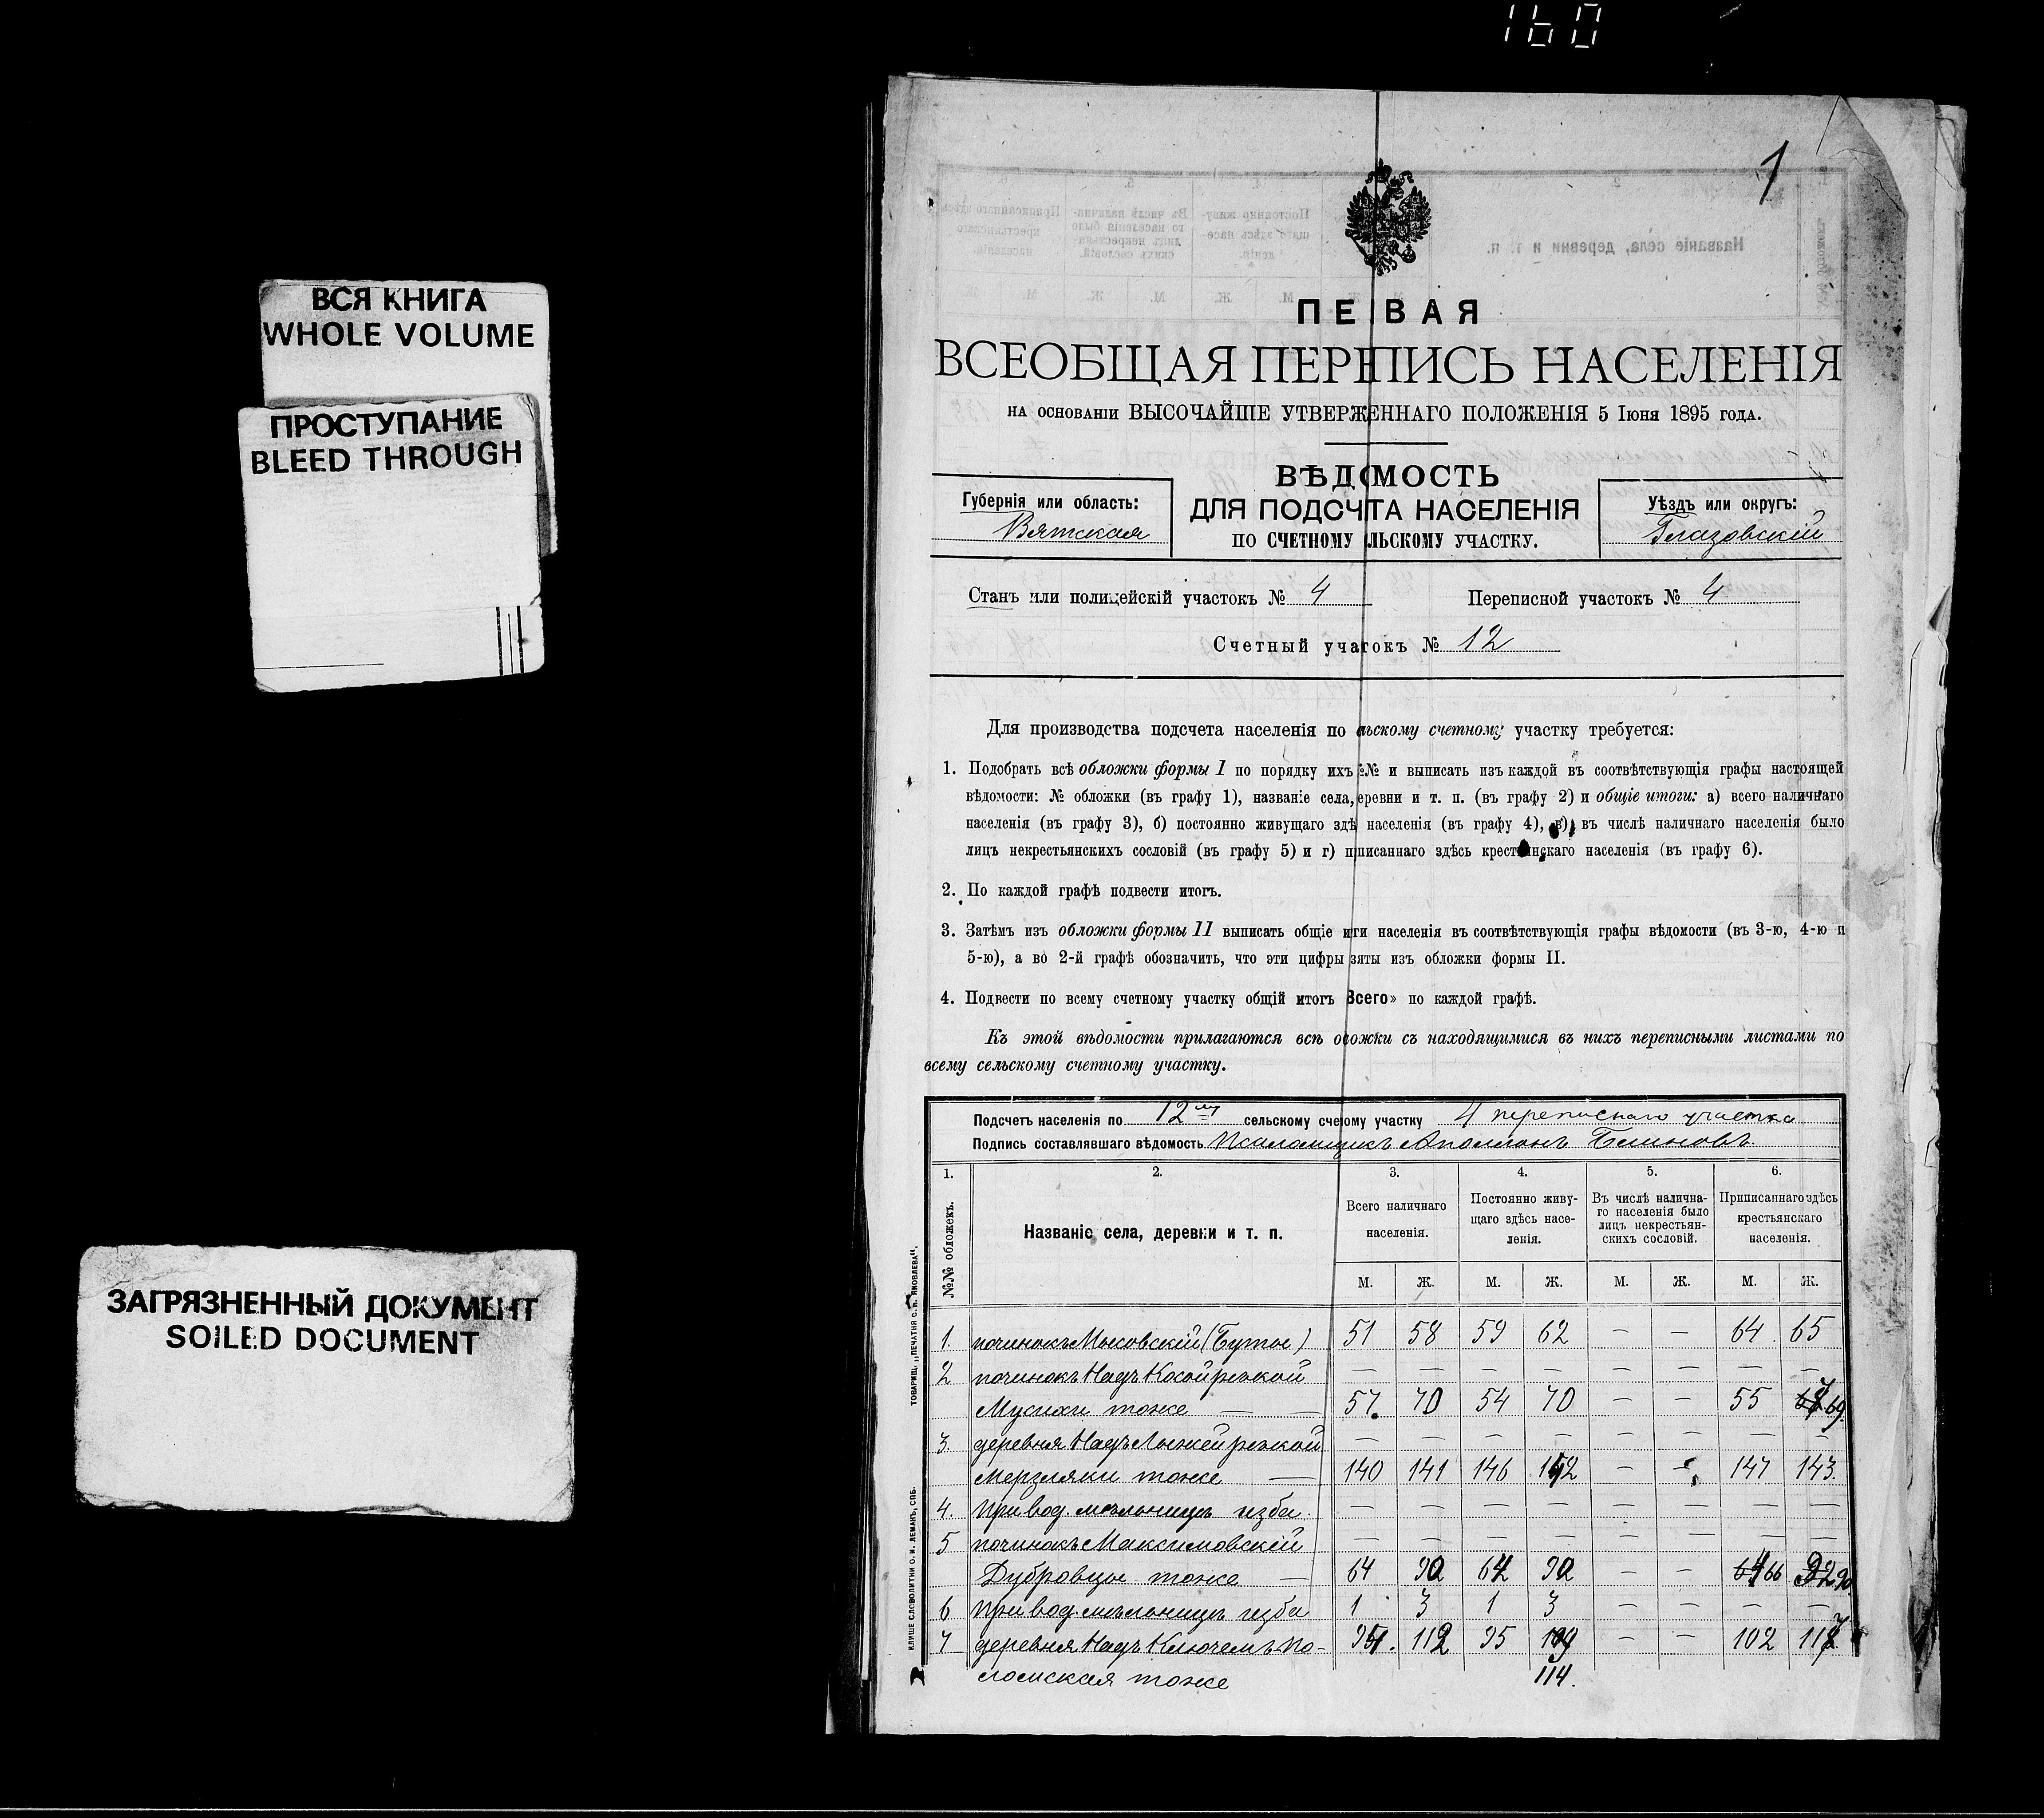 160
1
ВСЯ КНИГА
WHOLE VOLUME
ПРОСТУПАНИЕ
BLEED THROUGH
ЗАГРЯЗНЕННЫЙ ДОКУМЕНТ
SOILED DOCUMENT
ПЕВАЯ
ВСЕОБЩАЯ ПЕРПИСЬ НАСЕЛЕНІЯ
НА ОСНОВАНІИ ВЫСОЧАЙШЕ УТВЕРЖЕННАГО ПОЛОЖЕНІЯ 5 Іюня 1895 ГОДА.
ВѢДМОСТЬ
ДЛЯ ПОДСЧТА НАСЕЛЕНІЯ
ПО СЧЕТНОМУ ЛЬСКОМУ УЧАСТКУ.
Губернія или область:
Вятская
Уѣздъ или округъ:
Глазовскій
Станъ или полицейскій участокъ № 4 Переписной участокъ № 4
Счетный учатокъ № 12
Для производства подсчета населенія по льскому счетному участку требуется:
1. Подобрать всѣ обложки формы I по порядку ихъ №№ и выписать изъ каждой въ соотвѣтствующія графы настоящей
вѣдомости: № обложки (въ графу 1), названіе села, еревни и т. п. (въ графу 2) и общіе итоги: а) всего наличнаго
населенія (въ графу 3), б) постоянно живущаго здѣ населенія (въ графу 4), в) въ числѣ наличнаго населенія было
лицъ некрестьянскихъ сословій (въ графу 5) и г) пписаннаго здѣсь крестьянскаго населенія (въ графу 6).
2. По каждой графѣ подвести итогъ.
3. Затѣмъ изъ обложки формы II выписать общіе иги населенія въ соотвѣтствующія графы вѣдомости (въ 3-ю, 4-ю и
5-ю), а во 2-й графѣ обозначить, что эти цифры зяты изъ обложки формы II.
4. Подвести по всему счетному участку общій итогъ Всего» по каждой графѣ.
Къ этой вѣдомости прилагаются всѣ обожки съ находящимися въ нихъ переписными листами по
всему сельскому счетному участку.
Подсчетъ населенія по 12му сельскому счеому участку 4 переписнаго участка
Подпись составлявшаго вѣдомость Псаломщикъ Аполлонъ Блиновъ.
1. 2. 3. 4. 5. 6.
№№ обложекъ. Названіе села, деревни и т. п.
Всего наличнаго населенія.
Постоянно живущаго здѣсь населенія.
Въ числѣ наличнаго населенія было лицъ некрестьянскихъ сословій.
Приписаннаго здѣсь крестьянскаго населенія.
М. Ж. М. Ж. М. Ж. М. Ж.
1. починокъ Мысовскій (Буты) 51 58 59 62 — — 64 65
2 починокъ Надъ Косой рѣчкой — — — — — — — —
Мусихи тоже — — 57. 70 54 70 — — 55 69.
3. деревня Надъ Лыжей рѣчкой — — — — — — — —
Мерзляки тоже — 140 141 146 142 — — 147 143.
4. при вод. мѣльницѣ изба. — — — — — — — —
5 починокъ Максимовскій — — — — — — — —
Дубровцы тоже — 64 90 64 90 — — 66 90.
6 при вод. мѣльницѣ изба 1 3 1 3 — — — —
7 деревня Надъ Ключемъ По- 94. 112 95 — — 102 117
ломская тоже 114.
ТОВАРИЩ. „ПЕЧАТНЯ С. П. ЯКОВЛЕВА".
КЛИШЕ СЛОВОЛИТНИ О. И. ЛЕМАНЪ, СПБ.